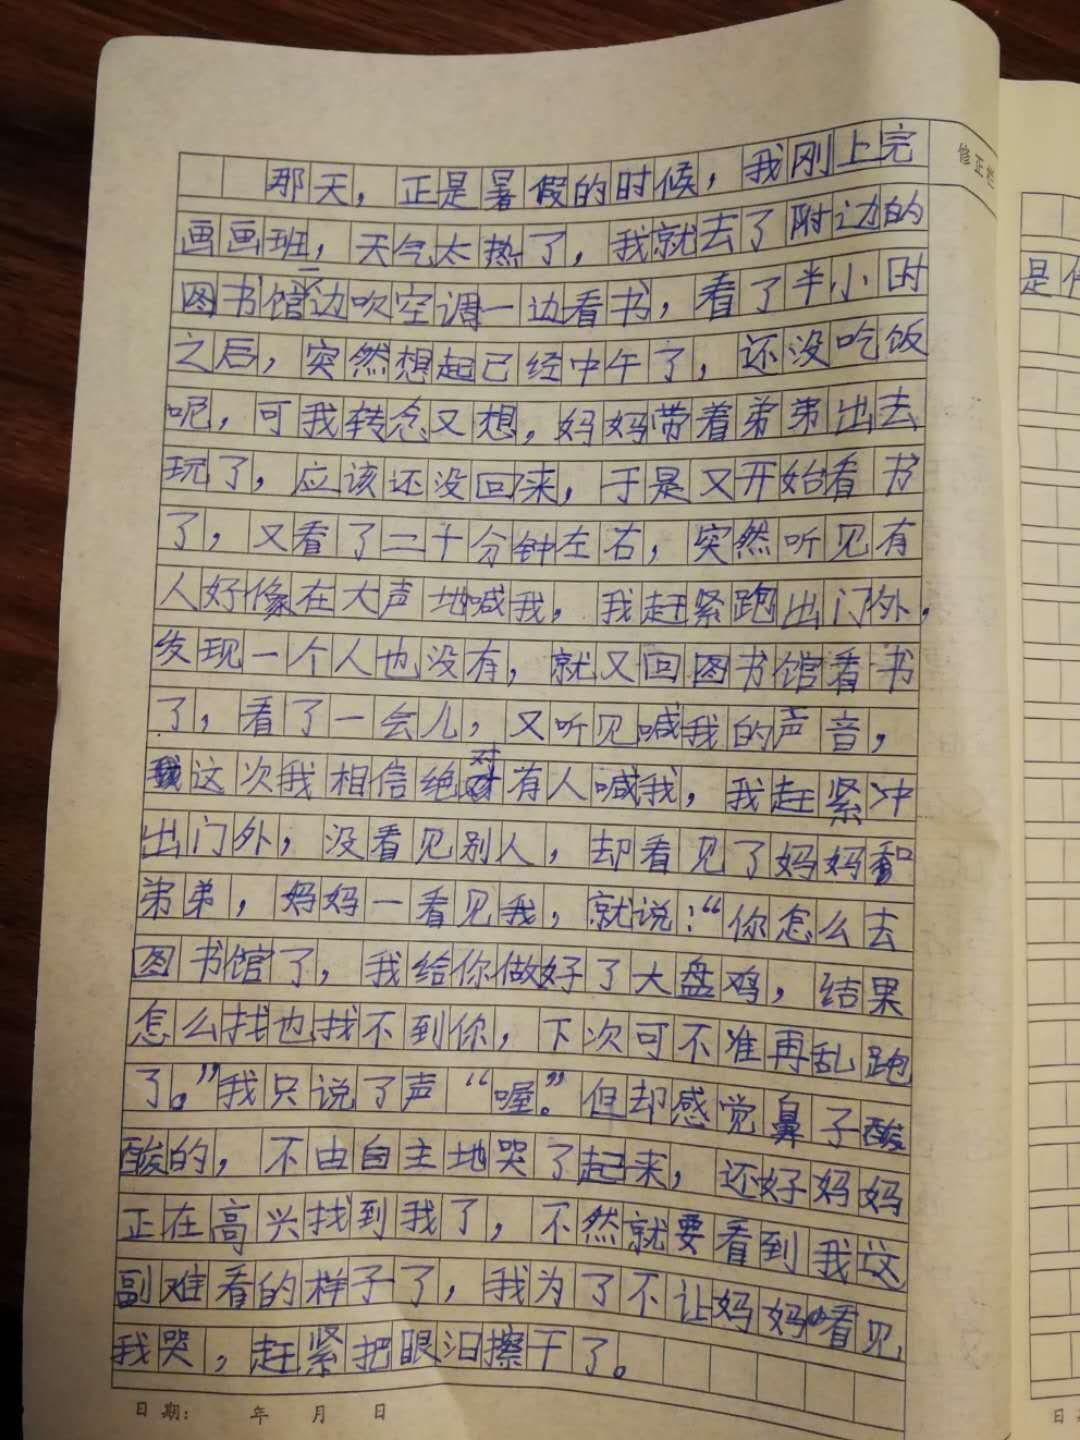 修正栏
那天，正是暑假的时候，我刚上完
画画班，天气太热了，我就去了附边的
图书馆一边吹空调一边看书，看了半小时
之后，突然想起已经中午了，还没吃饭
呢，可我转念又想，妈妈带着弟弟出去
玩了，应该还没回来，于是又开始看书
了，又看了二十分钟左右，突然听见有
人好像在大声地喊我，我赶紧跑出门外，
发现一个人也没有，就又回图书馆看书
了，看了一会儿，又听见喊我的声音，
这次我相信绝对有人喊我，我赶紧冲
出门外，没看见别人，却看见了妈妈和
弟弟，妈妈一看见我，就说：“你怎么去
图书馆了，我给你做好了大盘鸡，结果
怎么找也找不到你，下次可不准再乱跑
了。”我只说了声“喔。”但却感觉鼻子酸
酸的，不由自主地哭了起来，还好妈妈
正在高兴找到我了，不然就要看到我这
副难看的样子了，我为了不让妈妈看见
我哭，赶紧把眼泪擦干了。
日期：　年　月　日
是
日